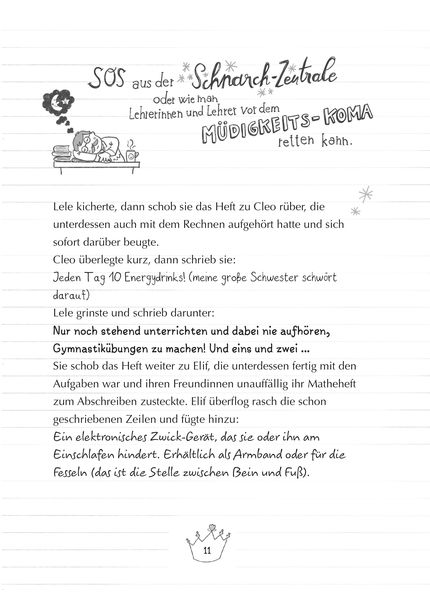 SOS aus der Schnarch-Zentrale
oder wie man
Lehrerinnen und Lehrer vor dem
MÜDIGKEITS-KOMA
retten kann.
Lele kicherte, dann schob sie das Heft zu Cleo rüber, die
unterdessen auch mit dem Rechnen aufgehört hatte und sich
sofort darüber beugte.
Cleo überlegte kurz, dann schrieb sie:
Jeden Tag 10 Energydrinks! (meine große Schwester schwört
darauf)
Lele grinste und schrieb darunter:
Nur noch stehend unterrichten und dabei nie aufhören,
Gymnastikübungen zu machen! Und eins und zwei ...
Sie schob das Heft weiter zu Elif, die unterdessen fertig mit den
Aufgaben war und ihren Freundinnen unauffällig ihr Matheheft
zum Abschreiben zusteckte. Elif überflog rasch die schon
geschriebenen Zeilen und fügte hinzu:
Ein elektronisches Zwick-Gerät, das sie oder ihn am
Einschlafen hindert. Erhältlich als Armband oder für die
Fesseln (das ist die Stelle zwischen Bein und Fuß).
11